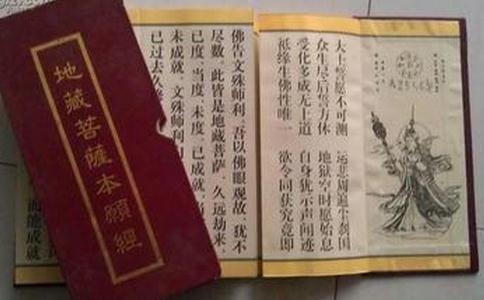 地藏菩薩本願經
大士誓愿不可测　运悲周遍尘刹国
众生尽后誓方休　地狱空时愿始息
受化多成无上道　自身犹示声闻迹
祗缘生佛性唯一　欲令同获究竟即
佛告文殊师利：吾以佛眼观故，犹不
尽数。此皆是地藏菩萨，久远劫来，
已度、当度、未度，已成就、
未成就。文殊师利
已过去久
而能成就